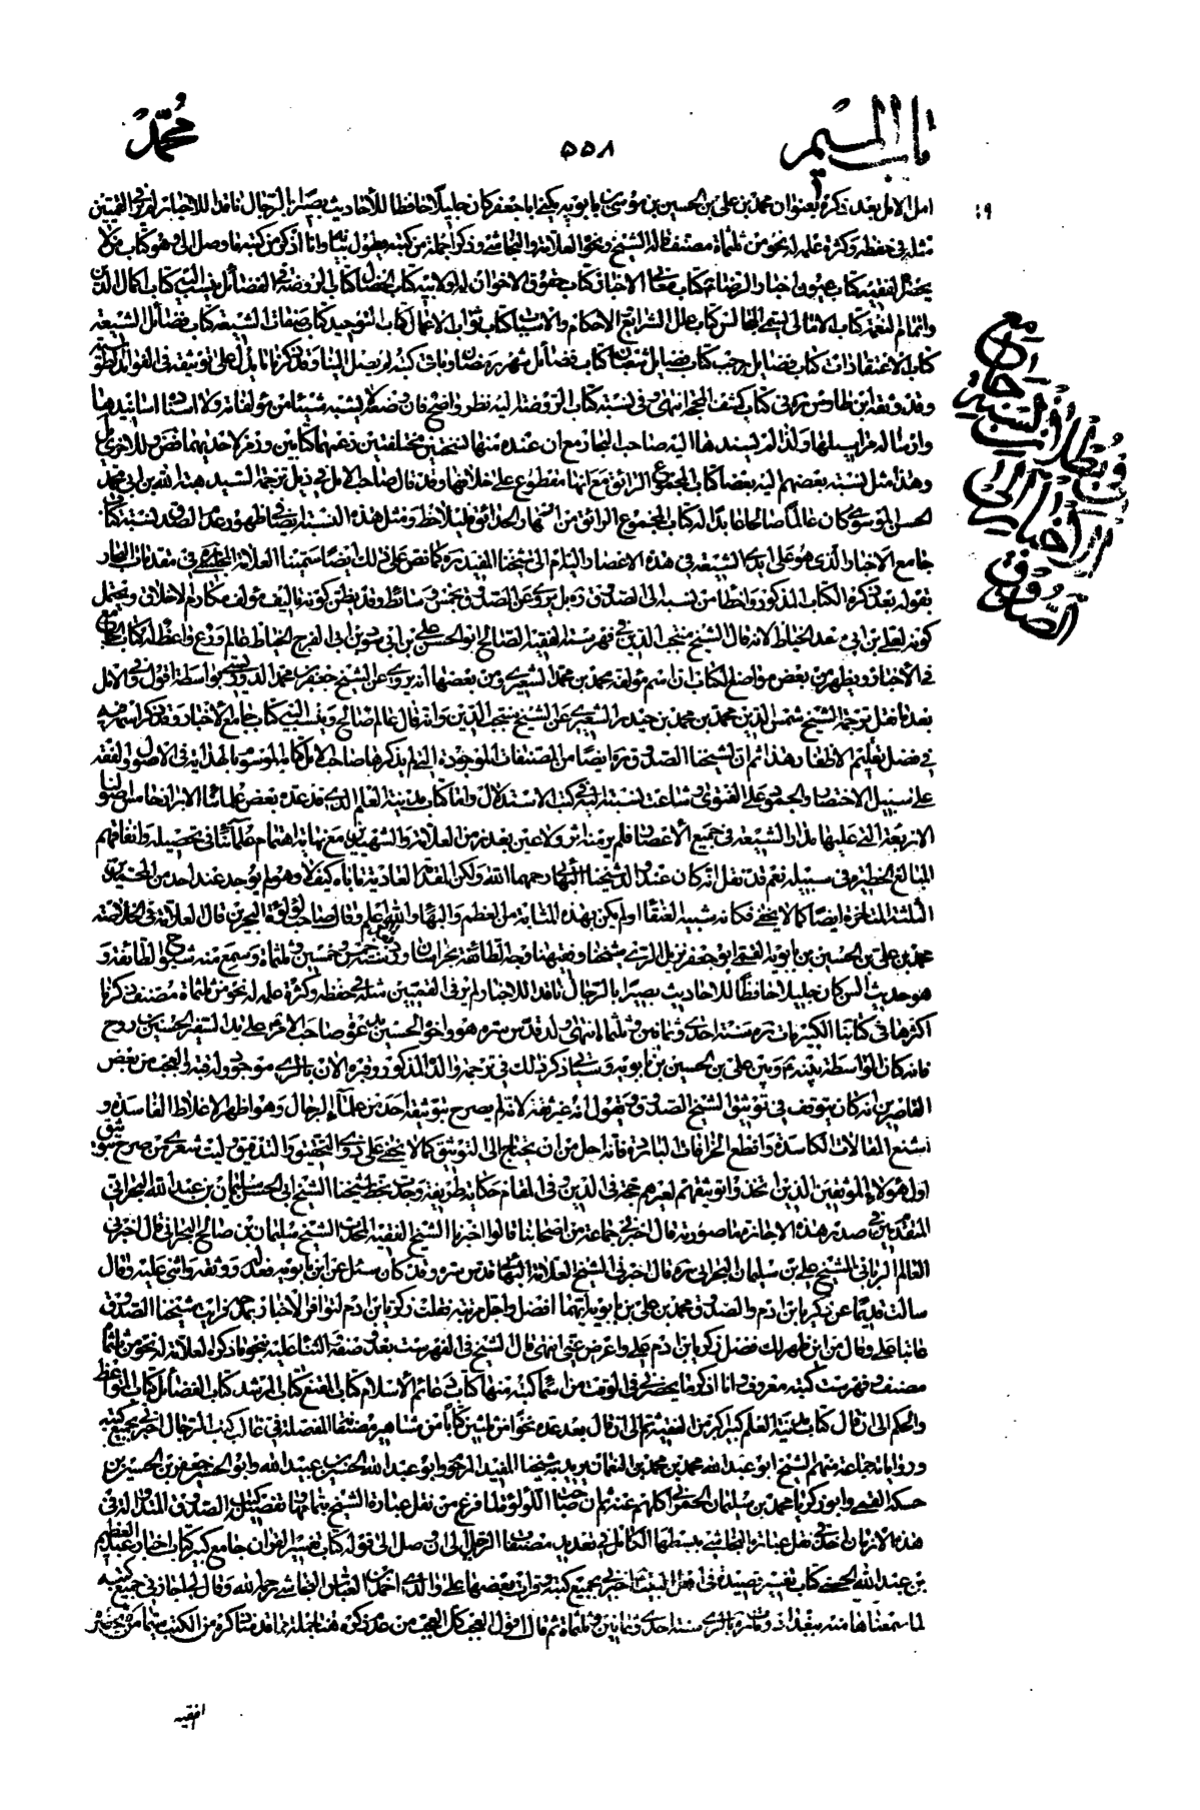 باب الميم
٥٥٨
محمد
امل الامل بعد ذكره بعنوان محمد بن علي بن الحسين بن موسى بن بابويه يكنى ابا جعفر كان جليلا حافظا للأحاديث بصيرا بالرجال ناقدا للاخبار لم ير في القميين
مثله في حفظه وكثرة علمه له نحو من ثلثمأة مصنف قاله الشيخ ونحوه العلامة والنجاشي وذكرا جملة من كتبه يطول بيانها وانا اذكر من كتبه ما وصل الى وهو كتاب من لا
يحضره الفقيه كتاب عيون اخبار الرضا كتاب معاني الاخبار كتاب حقوق الاخوان له او لابيه كتاب الخصال كتاب الروضة في الفضائل ينسب اليه كتاب اكمال الدين
واتمام النعمة كتاب الامالي يسمى المجالس كتاب علل الشرايع والاحكام والاسباب كتاب ثواب الاعمال كتاب التوحيد كتاب صفات الشيعة كتاب فضائل الشيعة
كتاب الاعتقادات كتاب فضايل رجب كتاب فضايل شعبان كتاب فضائل شهر رمضان وباقي كتبه لم يصل الينا وقد ذكرنا ما يدل على توثيقه في الفوائد الطوسية
وقد وثقه ابن طاوس في كتاب كشف المحجة انتهى وفي نسبة كتاب الروضة اليه نظر واضح
وهذا مثل نسبة بعضهم اليه بعضا كتاب المجموع الرائق مع انها مقطوع على خلافها وقد قال صاحب الامل في ذيل ترجمة السيد هبة الله بن ابي محمد
الحسن الموسوي كان عالما صالحا عابدا له كتاب المجموع الرائق من ازهار الحدائق فليلاحظ ومثل هذه النسبة ايضا في ظهور عدم الصدق نسبة كتاب
جامع الاخبار الذي هو على ايدي الشيعة في هذه الاعصار اليه او الى شيخنا المفيد ره كما نص على ذلك ايضا سمينا العلامة المجلسي في مقدمات البحار
بقوله بعد ذكره الكتاب المذكور واخطأ من نسبه الى الصدوق بل يروى عن الصدوق بخمس وسائط وقد يظن كونه تاليف مؤلف مكارم الاخلاق ويحتمل
كونه لعلي بن ابي سعد الخياط لانه قال الشيخ منتجب الدين في فهرسته الفقيه الصالح ابو الحسن علي بن ابي سعد بن ابي الفرج الخياط عالم ورع واعظ له كتاب الجامع
في الأخبار ويظهر من بعض مواضع الكتاب ان اسم مؤلفه محمد بن محمد الشعيري ومن بعضها انه يروى عن الشيخ جعفر بن محمد الدوريستي بواسطة اقول وفي الامل
بعد ما نقل ترجمة الشيخ شمس الدين محمد بن محمد بن حيدر الشعيري عن الشيخ منتجب الدين وانه قال عالم صالح وينسب اليه كتاب جامع الاخبار وقد ذكر اسمه فيه
في فضل تقليم الاظفار هذا ثم ان لشيخنا الصدوق ره ايضا من المصنفات الموجودة التي لم يذكرها صاحب الامل كتابه الموسوم بالهداية في الاصول والفقه
على سبيل الاختصار والجمود على الفتوى وشاعت نسبته اليه في كتب الاستدلال واما كتاب مدينة العلم الذي قد عده بعض علمائنا الابرار خامس اصولنا
الاربعة التي عليها مدار الشيعة في جميع الأعصار فلم ير منه اثر ولا عين بعد زمن العلامة والشهيدين مع نهاية اهتمام علمائنا في تحصيله وانفاقهم
المبالغ الخطيرة في سبيله نعم قد نقل انه كان عند والد شيخنا البهائي رحمهما الله ولكن المقدار العادية تاباه كيف لا ولم يوجد عند احد من المحمدين
الثلثة المتاخرة ايضا كما لا يخفى فكانه شبيه العنقا او لم يكن بهذه المثابة من العظم والبهاء والله اعلم وقال صاحب لؤلؤة البحرين قال العلامة في الخلاصة
محمد بن علي بن الحسين بن بابويه القمي ابو جعفر نزيل الري شيخنا وفقيهنا وجه الطائفة بخراسان ورد بغداد سنة خمس وخمسين وثلثمأة وسمع منه شيوخ الطائفة و
هو حديث السن كان جليلا حافظا للاحاديث بصيرا بالرجال ناقدا للاخبار لم ير في القميين مثله في حفظه وكثرة علمه له نحو من ثلثمأة مصنف ذكرنا
اكثرها في كتابنا الكبير مات ره سنة احدى وثمانين وثلثمأة انتهى ولد قدس سره هو واخو الحسين بدعوة صاحب الامر على يد السفير الحسين بن روح
فانه كان الواسطة بينه وبين علي بن الحسين بن بابويه وسياتي ذكر ذلك في ترجمة والده المذكور وقبره الان بالري موجود وله قبة والعجب من بعض
القاصرين انه كان يتوقف في توثيق الشيخ الصدوق ويقول انه غير ثقة لانه لم يصرح بتوثيقه احد من علماء الرجال وهو اظهر الاغلاط الفاسدة و
اشنع المقالات الكاسدة وافظع الخرافات البائرة فانه اجل من ان يحتاج الى التوثيق كما لا يخفى على ذوي التحقيق والتدقيق وليت شعري من صرح بتوثيق
اول هؤلاء الموثقين الذين اتخذوا توثيقهم لغيرهم حجة في الدين وفي المقام حكاية طريفة وجدت بخط شيخنا الشيخ ابي الحسن سليمان بن عبد الله البحراني
المتقدم في صدر هذه الاجازة ما صورته قال اخبرني جماعة من اصحابنا قالوا اخبرنا الشيخ الفقيه المحدث الشيخ سليمان بن صالح البحراني قال اخبرني
العالم الرباني الشيخ علي بن سليمان البحراني ره قال اخبرني الشيخ العلامة البهائي قدس سره وقد كان سئل عن ابن بابويه فعدله ووثقه واثنى عليه وقال
سالت قديما عن زكريا بن ادم والصدوق محمد بن علي بن بابويه ايهما افضل واجل مرتبة فقلت زكريا بن ادم لتوافر الاخبار بمدحه فرايت شيخنا الصدوق
عاتبا على وقال من اين ظهر لك فضل زكريا بن ادم علي واعرض عني انتهى قال الشيخ في الفهرست بعد وصفه الثنا عليه بنحو ما ذكره العلامة له نحو من ثلثمأة
مصنف وفهرست كتبه معروف وانا اذكر ما يحضرني في الوقت من اسماء كتبه منها كتاب دعائم الاسلام كتاب المقنع كتاب المرشد كتاب الفضائل كتاب المواعظ
والحكم الى ان قال كتاب مدينة العلم كبير اكبر من الفقيه ثم الى ان قال بعد عده نحوا من اربعين كتابا من مشاهير مصنفاته المفصلة في غالب كتب الرجال اخبرني بجميع كتبه
ورواياته جماعة منهم الشيخ ابو عبد الله محمد بن محمد بن النعمان يريد به شيخنا المفيد المرحوم وابو عبد الله الحسين بن عبيد الله وابو الحسين جعفر بن الحسين بن
حسكة القمي وابو زكريا محمد بن سليمان الحمراني كلهم عنه ثم ان صاحب اللؤلؤة لما فرغ من نقل عبارة الشيخ بتمامها
هذه الازمان اخذ في نقل عبارة النجاشي ببسطها الكامل في تعديد مصنفات الرجل الى ان وصل الى قوله كتاب تفسير القران جامع كبير كتاب اخبار عبد العظيم
بن عبد الله الحسني كتاب تفسير قصيدة في اهل البيت اخبرني بجميع كتبه وقرات بعضها على والدي احمد بن العباس النجاشي رحمه الله وقال لي اجازني جميع كتبه
لما سمعناها منه ببغداد ومات ره بالري سنة احدى وثمانين وثلثمأة ثم قال اقول العجب كل العجب من عدم ذكره
في بطلان نسبة جامع الاخبار الى الصدوق